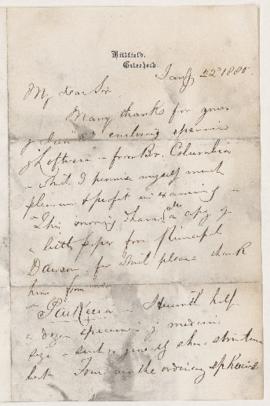 Hillfield,
Gateshead.
Jany 22d 1880
My dear Sir
Many thanks for yours
of Jan enclosing specimen
of Loftusia from Br. Columbia
which I promise myself much
pleasure & profit in examining
This morning I have a copy of
a little paper from Principal
Dawson for which please thank
him from me
Parkeria I have half
a dozen specimens of medium
size and of the
but Four are the ordinary spherical